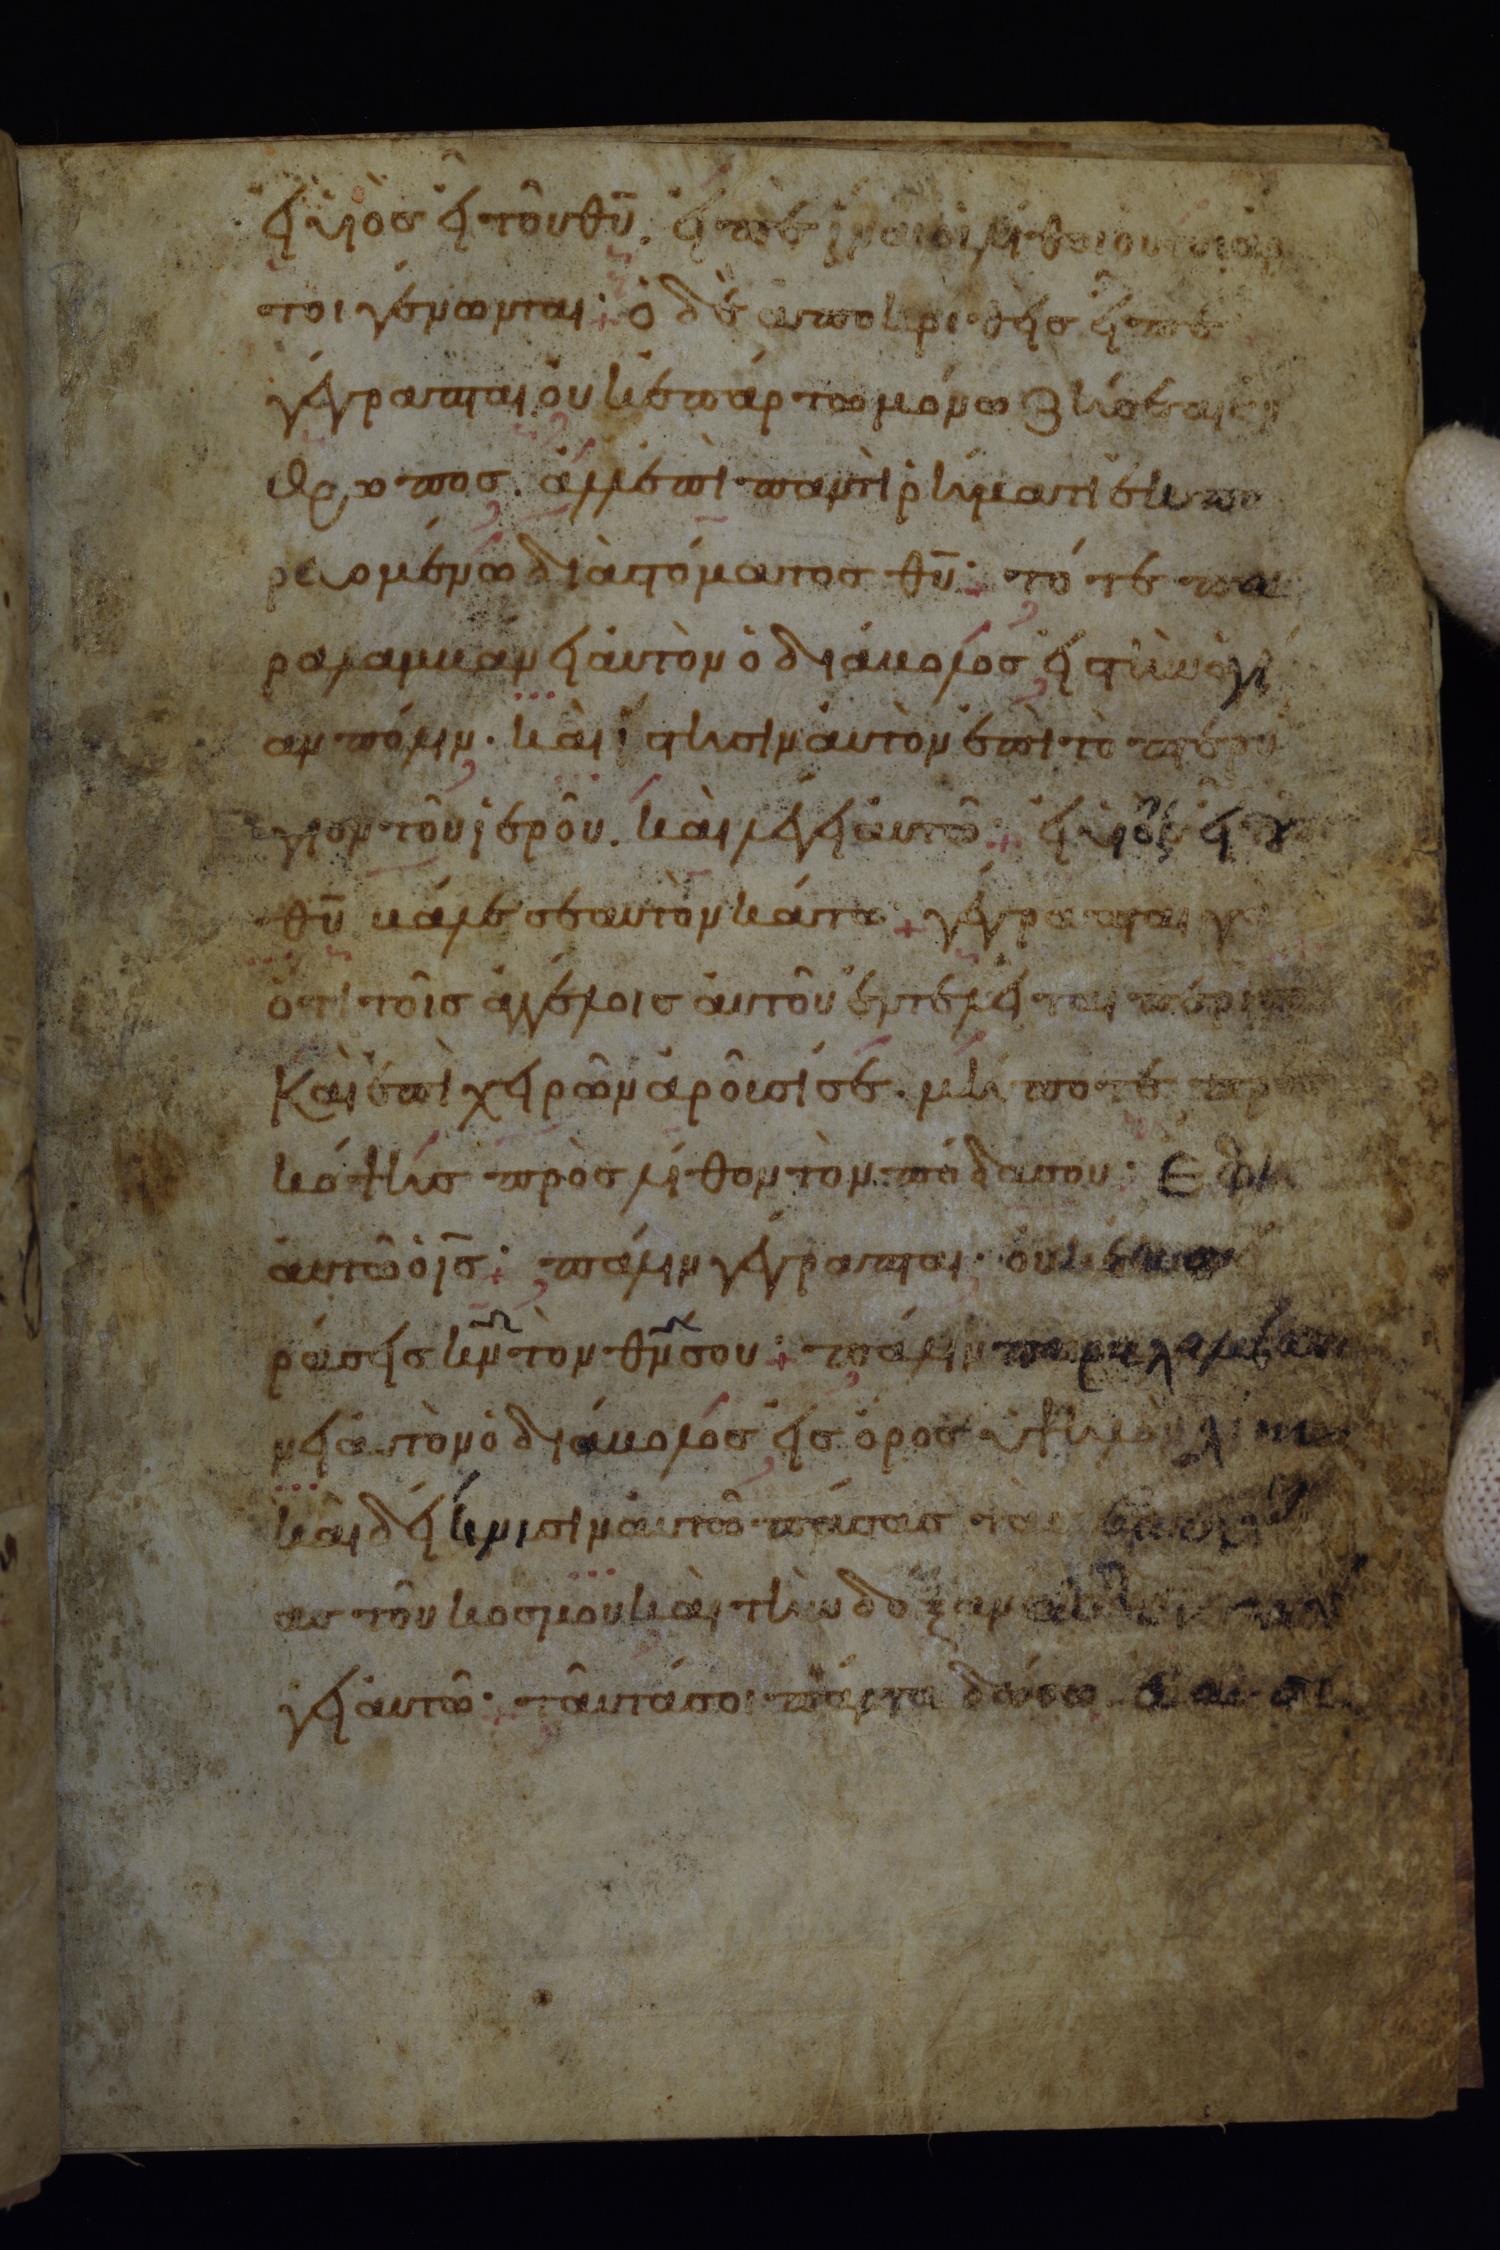 εἰ υἱὸς εἶ τοῦ θῡ. εἰπὲ ἵνα οἱ λίθοι οὗτοι ἄρ
τοι γένωνται· ὁ δὲ ἀποκριθεὶς εἶπε
γέγραπται οὐκ ἐπάρτω μόνω ζήσεται ἄν
θρωπος. ἀλλ ἐπὶ παντὶ ῥήματι ἐκπο
ρευομένω διὰ στόματος θῡ· τότε πα
ραλαμβάνει αὐτὸν ὁ διάβολος εἰς τὴν ἁγί
αν πόλιν. καὶ ἵστησιν αὐτὸν ἐπὶ τὸ πτερύ
γιον τοῦ ἱεροῦ. καὶ λέγει αὐτῶ· εἰ υἱὸς εἶ τοῦ
θῡ βάλε σεαυτὸν κάτω· γέγραπται γὰρ
ὅτι τοῖς ἀγγέλοις αὐτοῦ ἐντελεῖται περὶ
Καὶ ἐπὶ χειρῶν ἀροῦσί σε. μήποτε προσ
κόψης πρὸς λίθον τὸν πόδα σου· Ἔφη
αὐτῶ ὁ ῑς· πάλιν γέγραπται· οὐκ ἐκπει
ράσεις κ̄ν τὸν θ̄ν σου· πάλιν παραλαμβάνει
αὐτὸν ὁ διάβολος εἰς ὄρος ὑψηλὸν λίαν
καὶ δείκνυσιν αὐτῶ πάσας τὰς βασιλεί
ας τοῦ κόσμου καὶ τὴν δόξαν αὐτῶν
γει αὐτῶ· ταῦτά σοι πάντα δώσω ἐὰν